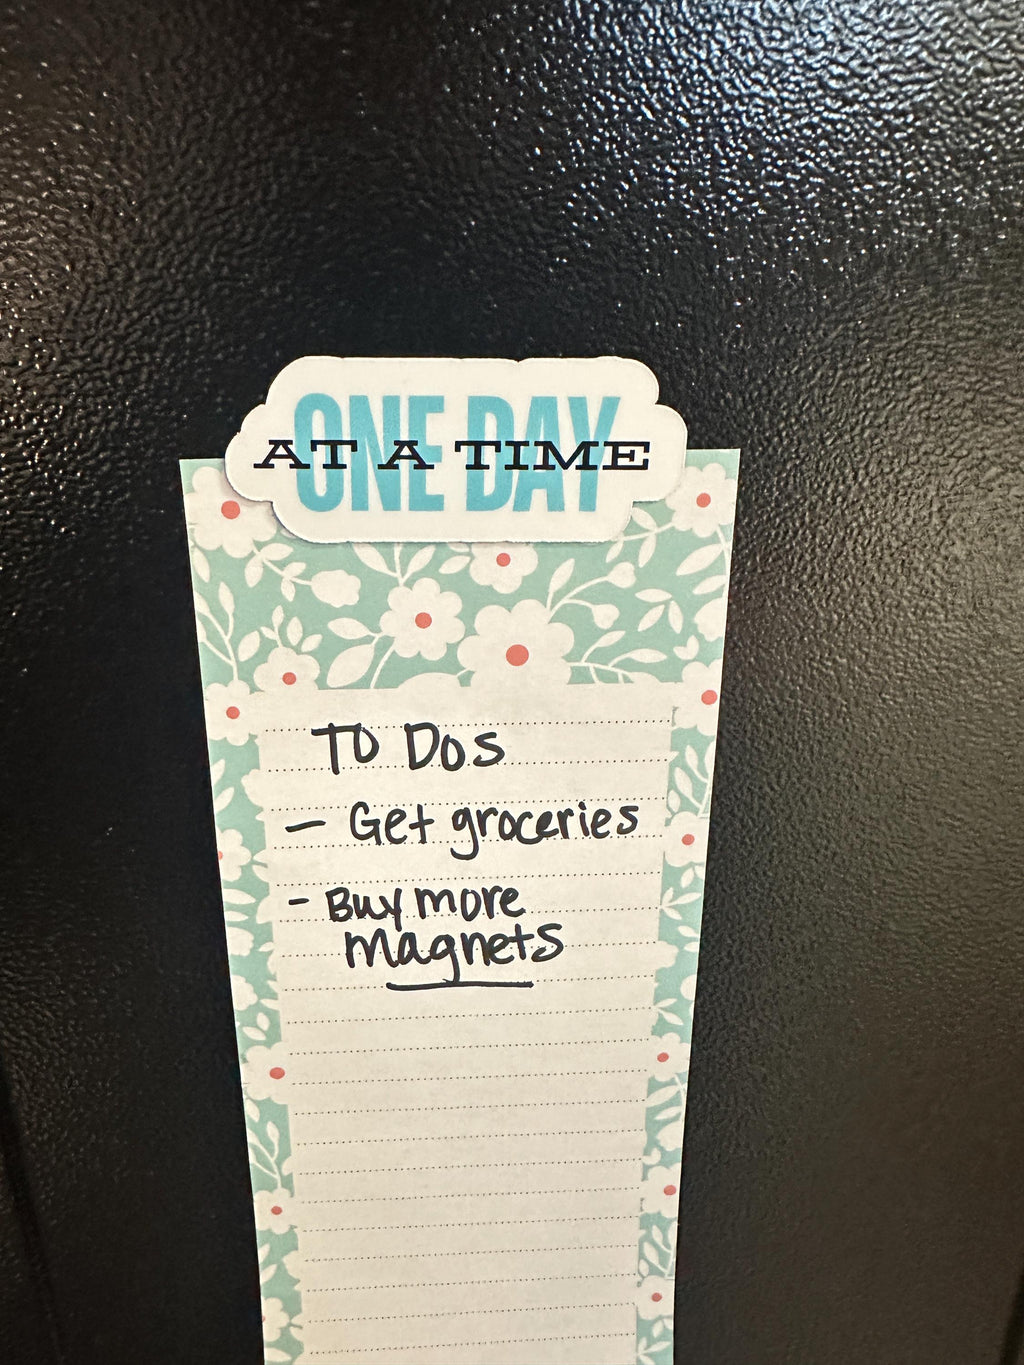 ONE DAY
AT A TIME
TO DOS
- Get groceries
- Buy more
magnets